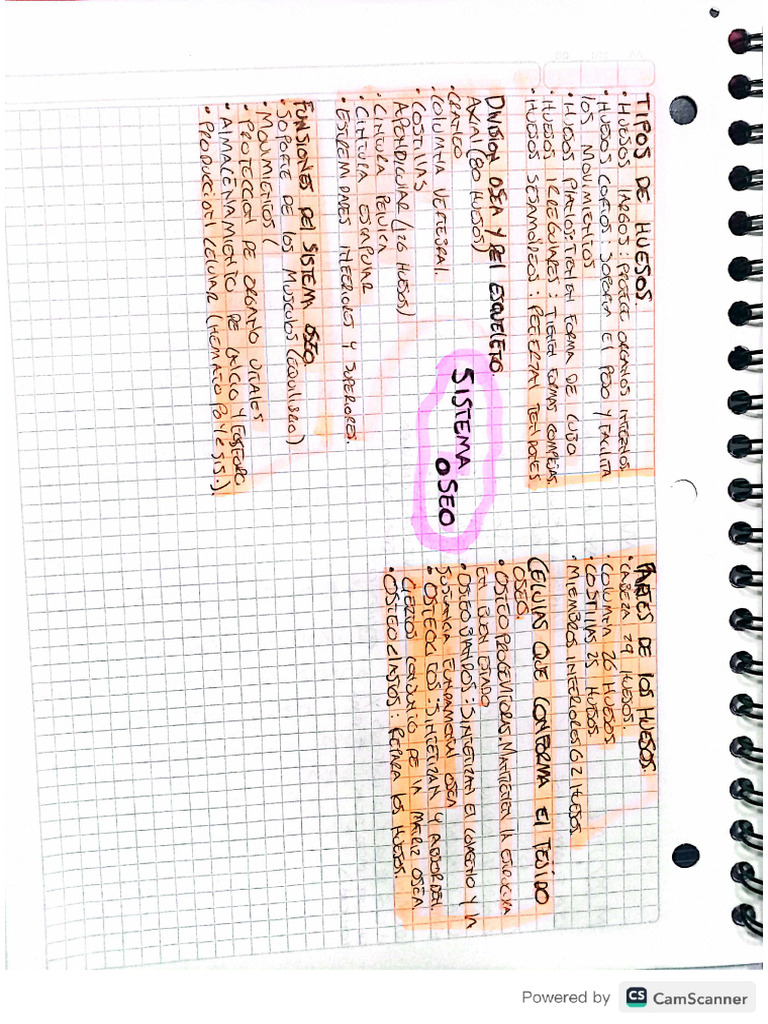 TIPOS DE HUESOS.
• HUESOS LARGOS: PROTEGE ORGANOS INTERNOS.
• HUESOS CORTOS: SOPORTA EL PESO Y FACILITA
LOS MOVIMIENTOS
• HUESOS PLANOS: TIENEN FORMA DE CUBO
• HUESOS IRREGULARES: TIENEN FORMAS COMPLEJAS.
• HUESOS SESAMOIDEOS: REFUERZAN TENDONES
DIVISION OSEA Y DEL ESQUELETO.
AXIAL (80 HUESOS)
• CRANEO
• COLUMNA VERTEBRAL.
• COSTILLAS
APENDICULAR (126 HUESOS)
• CINTURA PELVICA
• CINTURA ESCAPULAR
• ESTREMIDADES INFERIORES Y SUPERIORES.
FUNSIONES DEL SISTEMA OSEO
• SOPORTE DE LOS MUSCULOS (EQUILIBRIO)
• MOVIMIENTOS (
• PROTECCION DE ORGANO VITALES
• ALMACENAMIENTO DE CALCIO Y FOSFORO
• PRODUCCION CELULAR (HEMATOPOYESIS.)
SISTEMA
OSEO
PARTES DE LOS HUESOS.
• CABEZA 29 HUESOS.
• COLUMNA 26 HUESOS
• COSTILLAS 25 HUESOS.
• MIEMBROS INFERIORES 62 HUESOS.
CELULAS QUE CONFORMA EL TEJIDO
OSEO.
• OSTEOPROGENITORAS. MANTIENEN LA ESTRUCTURA
EN BUEN ESTADO
• OSTEOBLASTOS: SINTETIZAN EL COLAGENO Y LA
SUSTANCIA FUNDAMENTAL OSEA
• OSTEOCITOS: SINTETIZAN Y ABSORBEN
CIERTOS CONJUNTO DE LA MATRIZ OSEA.
• OSTEOCLASTOS: REPARA LOS HUESOS.
Powered by CS CamScanner